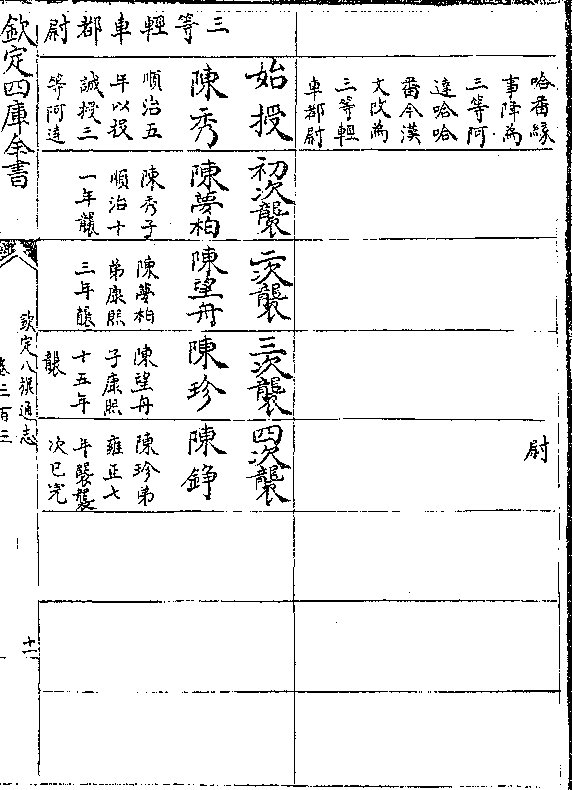 哈番緣
事降為
三等阿
達哈哈
番今漢
文改為
三等輕
車都尉
尉
三等輕車都尉
始授
陳秀
順治五
年以投
誠授三
等阿達
初次襲
陳夢柏
陳秀子
順治十
一年襲
二次襲
陳望舟
陳夢柏
弟康熙
三年襲
三次襲
陳珍
陳望舟
子康熙
十五年
襲
四次襲
陳錚
陳珍弟
雍正七
年襲襲
次已完
欽定四庫全書
欽定八旗通志
卷三百三
十一